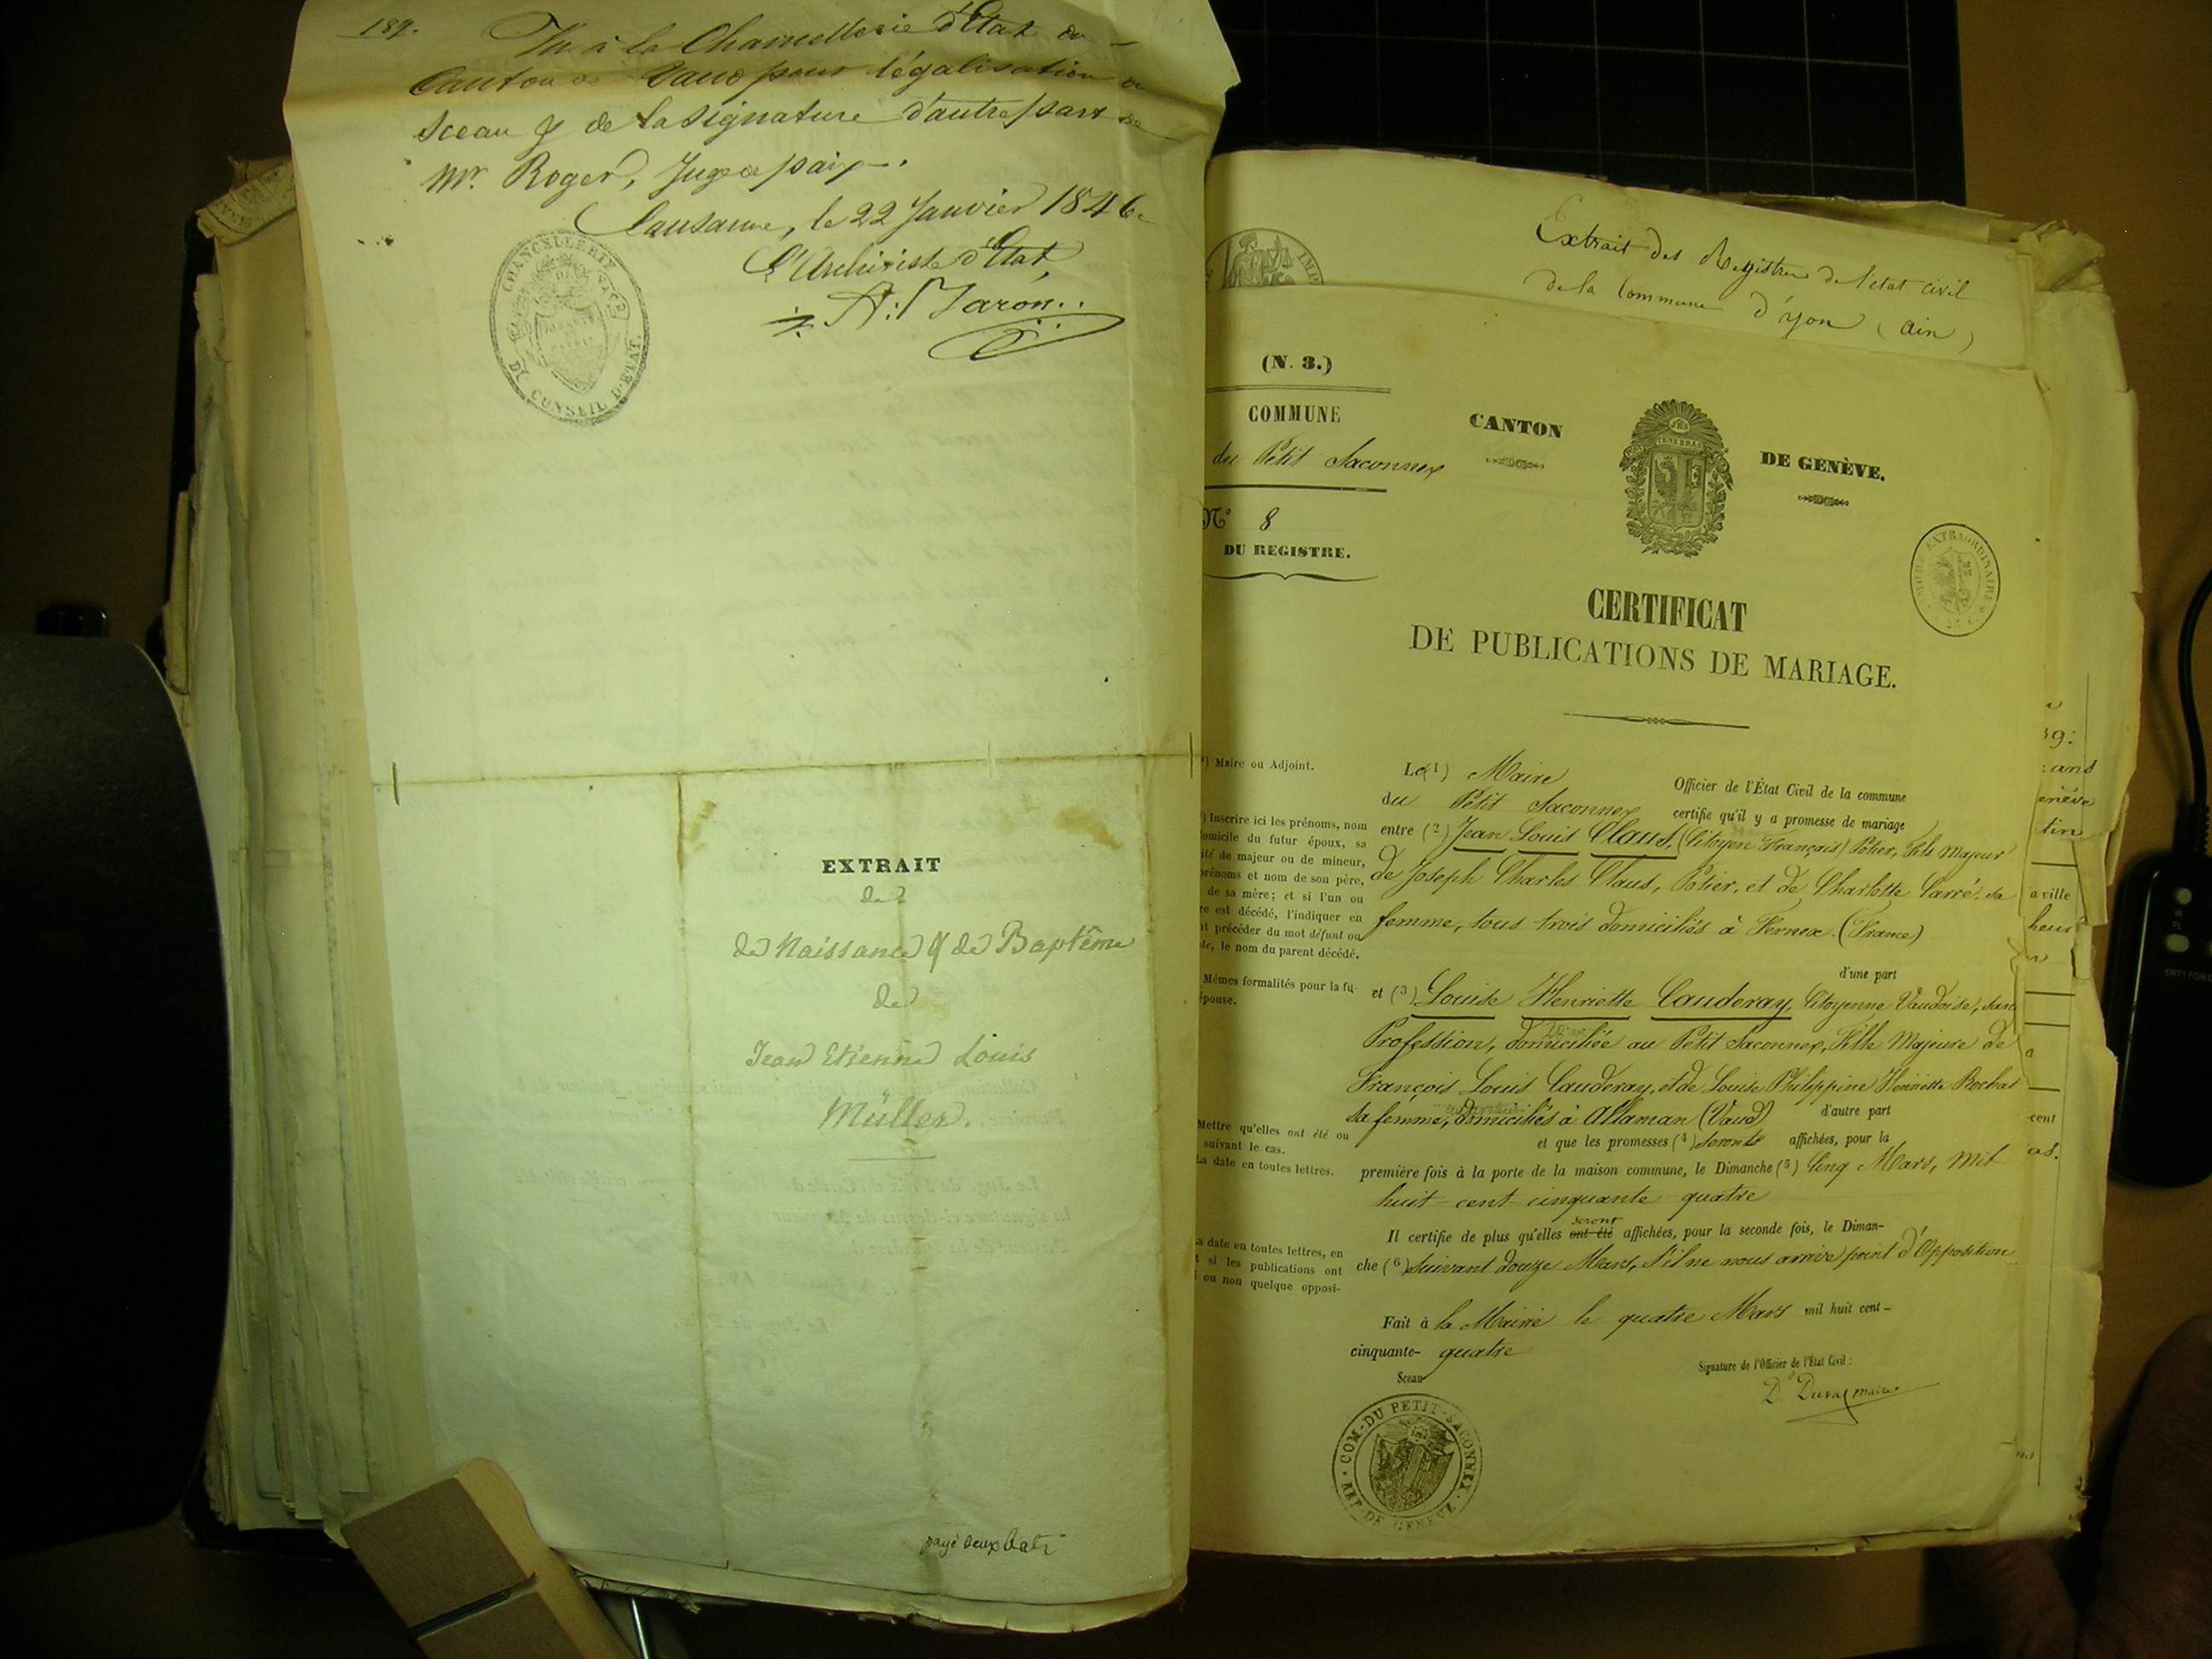 189. Vu à la Chancellerie d'Etat du
Canton de Vaud pour légalisation du
Sceau & de la signature d'autre part de
Mr. Roger, Juge de paix.
Lausanne, le 22 Janvier 1846.
L'Archiviste d'Etat,
CHANCELLERIE
DU CONSEIL D'ETAT.
EXTRAIT
de
de Naissance & de Baptême
de
Jean Etienne Louis
Müller.
payé deux batz
Extrait des Registres de l'état civil
de la Commune d'yon (ain)
(N. 3.)
COMMUNE
du Petit Saconnex
N° 8
DU REGISTRE.
CANTON
DE GENÈVE.
TENEBRAS
EXTRAORDINAIRE
CERTIFICAT
DE PUBLICATIONS DE MARIAGE.
) Maire ou Adjoint.
) Inscrire ici les prénoms, nom
omicile du futur époux, sa
ité de majeur ou de mineur,
rénoms et nom de son père,
de sa mère; et si l'un ou
re est décédé, l'indiquer en
t précéder du mot défunt ou
te, le nom du parent décédé.
Mêmes formalités pour la fu-
épouse.
Mettre qu'elles ont été ou
suivant le cas.
La date en toutes lettres.
a date en toutes lettres, en
t si les publications ont
ou non quelque opposi-
Le (1) Maire Officier de l'État Civil de la commune
du Petit Saconnex certifie qu'il y a promesse de mariage
entre (2) Jean Louis Claus, (Citoyen Français) Potier, Fils majeur
de Joseph Charles Claus, Potier, et de Charlotte Carré, sa
femme, tous trois domiciliés à Fernex. (France)
d'une part
et (3) Louise Henriette Cauderay, Citoyenne Vaudoise, sans
Profession, domiciliée au Petit Saconnex, Fille Majeure de
François Louis Cauderay, et de Louise Philippine Henriette Rochat
sa femme, domiciliés à Allaman (Vaud) d'autre part
et que les promesses (4) seront affichées, pour la
première fois à la porte de la maison commune, le Dimanche (5) Cinq Mars, mil
huit cent cinquante quatre
seront
Il certifie de plus qu'elles ont été affichées, pour la seconde fois, le Diman-
che (6) suivant douze Mars, s'il ne nous arrive point d'Opposition
Fait à la Mairie le quatre Mars mil huit cent-
cinquante- quatre
Sceau
Signature de l'Officier de l'État Civil :
D. Duval maire
COM. DU PETIT-SACONNEX
REP. DE GENEVE